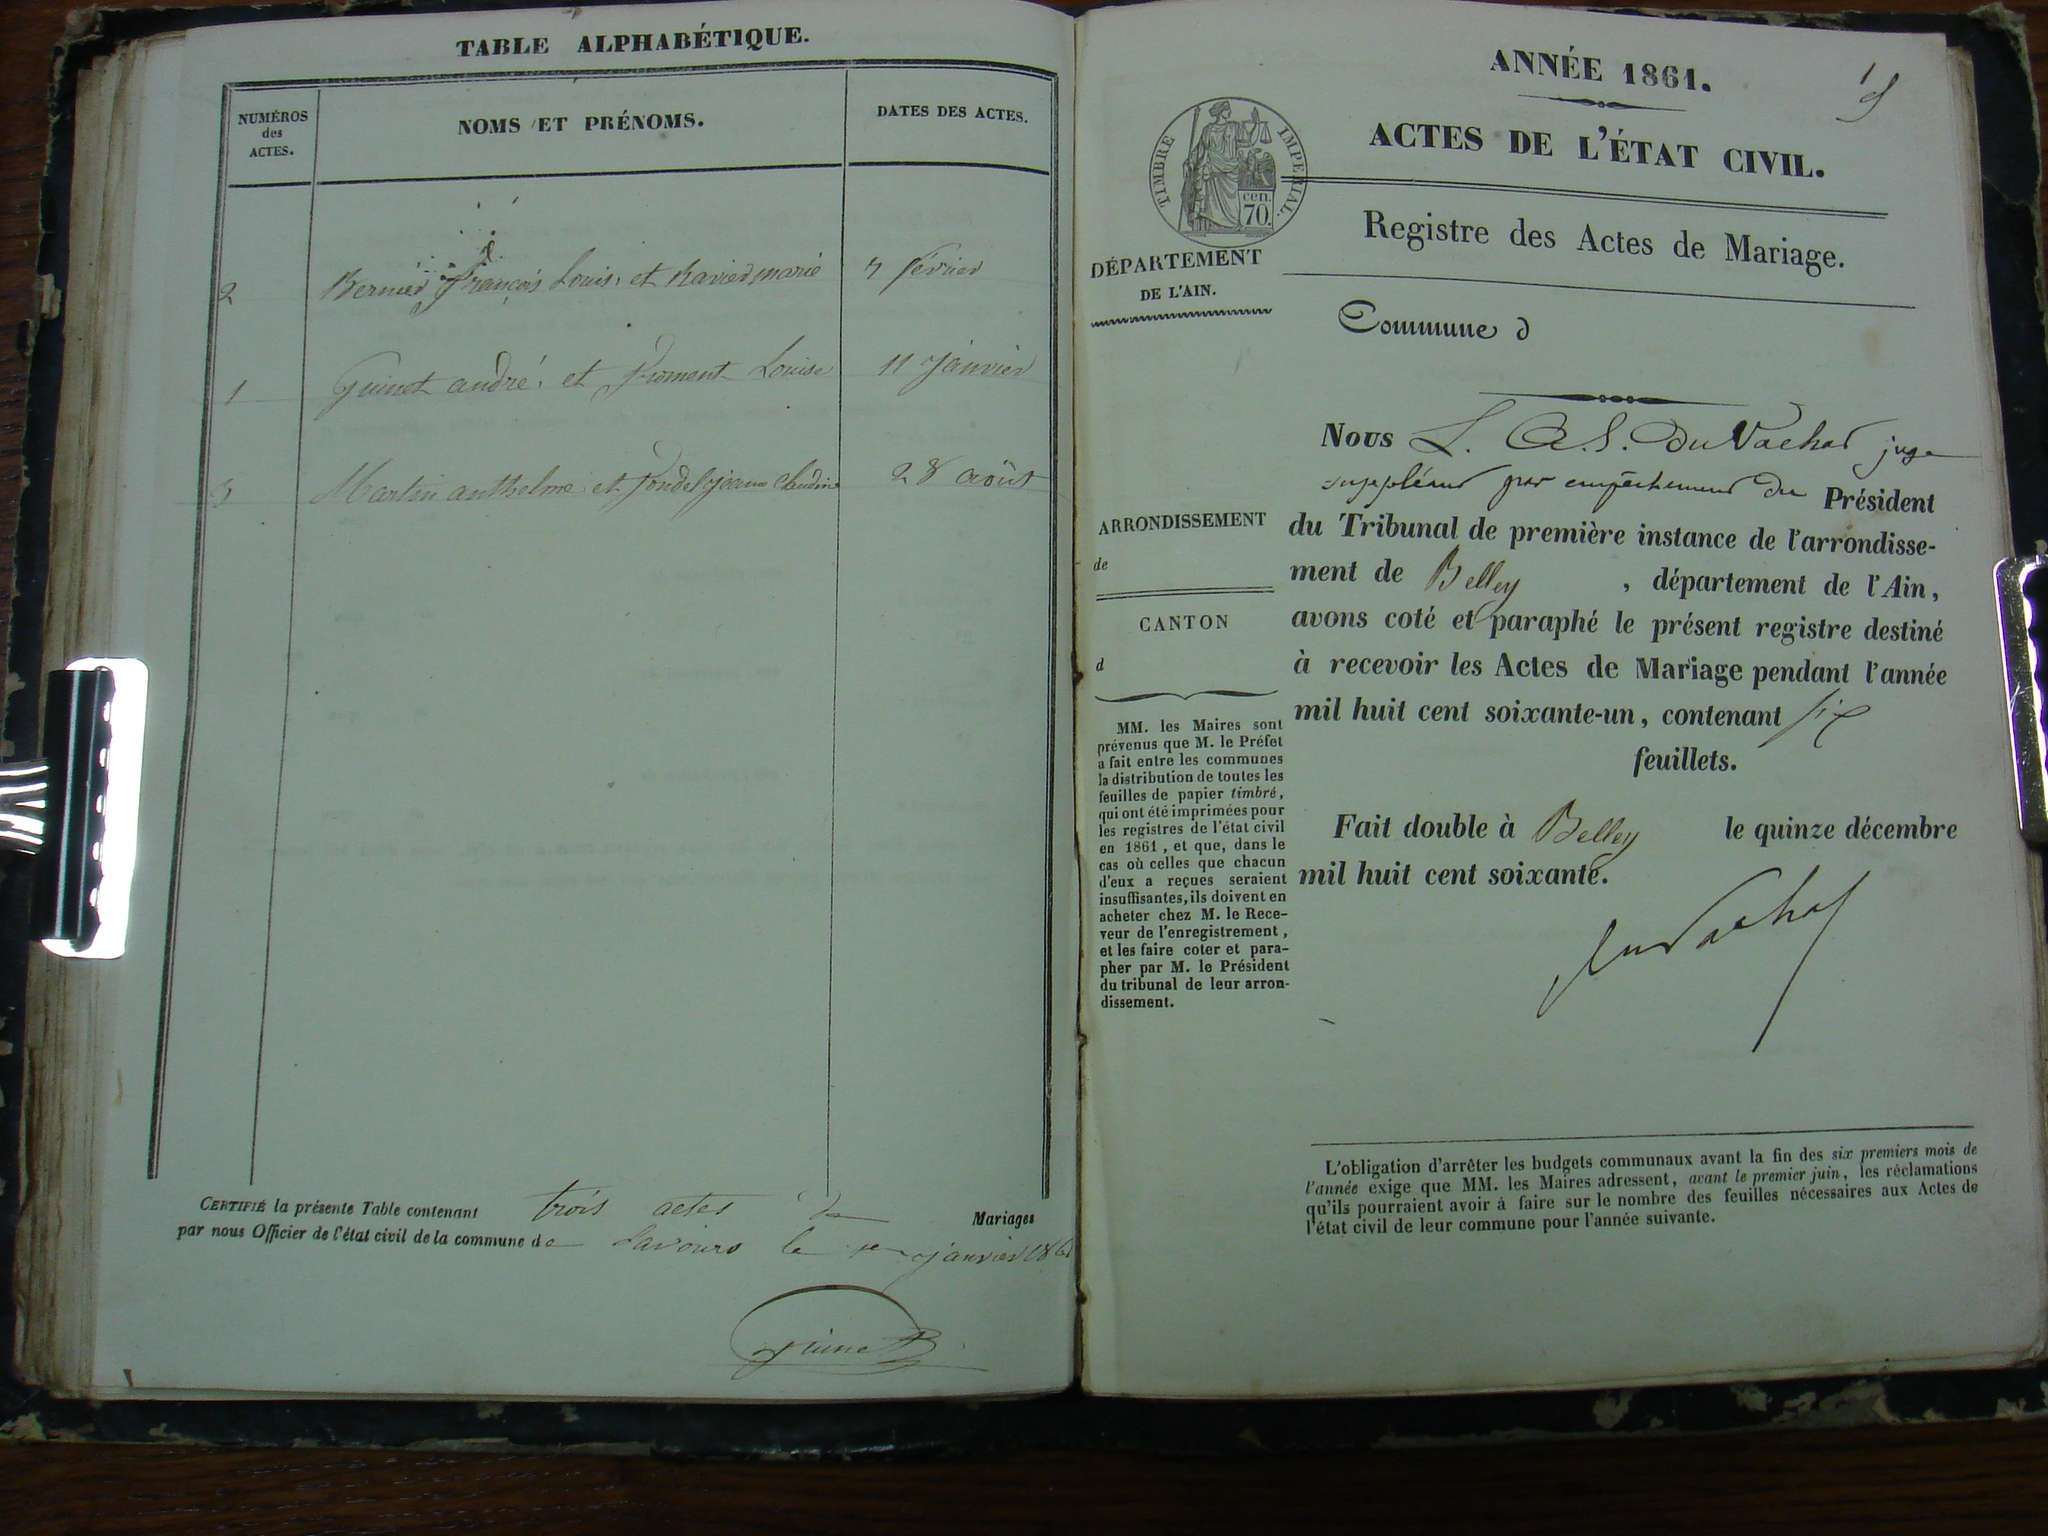 TABLE ALPHABÉTIQUE.
NUMÉROS
des
ACTES.
NOMS ET PRÉNOMS.
DATES DES ACTES.
2 Bernier François Louis et marie 7 février
1 Guinet andré, et Froment Louise 11 janvier
3 Martin anthelme et claudine 28 août
CERTIFIÉ la présente Table contenant trois actes de Mariages
par nous Officier de l'état civil de la commune de Lavours le janvier 186
Guinet
ANNÉE 1861.
1
ACTES DE L'ÉTAT CIVIL.
TIMBRE IMPÉRIAL.
cen.
70.
Registre des Actes de Mariage.
DÉPARTEMENT
DE L'AIN.
Commune d
Nous L. A. S. Du Vachat juge
suppléant par empêchement du Président
du Tribunal de première instance de l'arrondisse-
ment de Belley , département de l'Ain,
avons coté et paraphé le présent registre destiné
à recevoir les Actes de Mariage pendant l'année
mil huit cent soixante-un, contenant six
feuillets.
Fait double à Belley le quinze décembre
mil huit cent soixante.
du Vachat
ARRONDISSEMENT
de
CANTON
d
MM. les Maires sont
prévenus que M. le Préfet
a fait entre les communes
la distribution de toutes les
feuilles de papier timbré,
qui ont été imprimées pour
les registres de l'état civil
en 1861, et que, dans le
cas où celles que chacun
d'eux a reçues seraient
insuffisantes, ils doivent en
acheter chez M. le Rece-
veur de l'enregistrement,
et les faire coter et para-
pher par M. le Président
du tribunal de leur arron-
dissement.
L'obligation d'arrêter les budgets communaux avant la fin des six premiers mois de
l'année exige que MM. les Maires adressent, avant le premier juin, les réclamations
qu'ils pourraient avoir à faire sur le nombre des feuilles nécessaires aux Actes de
l'état civil de leur commune pour l'année suivante.